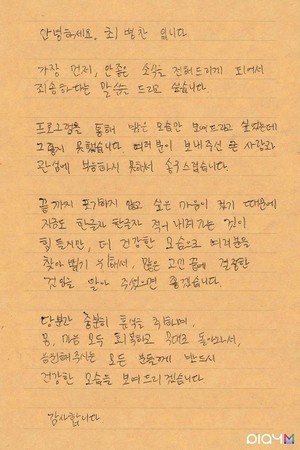 안녕하세요. 최병찬 입니다
가장 먼저, 안좋은 소식을 전해드리게 되어서
죄송하다는 말씀을 드리고 싶습니다
프로그램을 통해 밝은 모습만 보여드리고 싶었는데
그렇지 못했습니다 여러분이 보내주신 큰 사랑과
관심에 부응하지 못해서 송구스럽습니다.
끝까지 포기하지 않고 싶은 마음이 컸기 때문에
지금도 한글자 한글자 적어 내려가는 것이
힘들지만, 더 건강한 모습으로 여러분을
찾아 뵙기 위해서, 많은 고민 끝에 결정한
것임을 알아 주셨으면 좋겠습니다.
당분간 충분히 휴식을 취하며,
몸, 마음 모두 회복하고 돌아와서,
응원해주시는 모든 분들께 반드시
건강한 모습을 보여드리겠습니다.
감사합니다.
play M